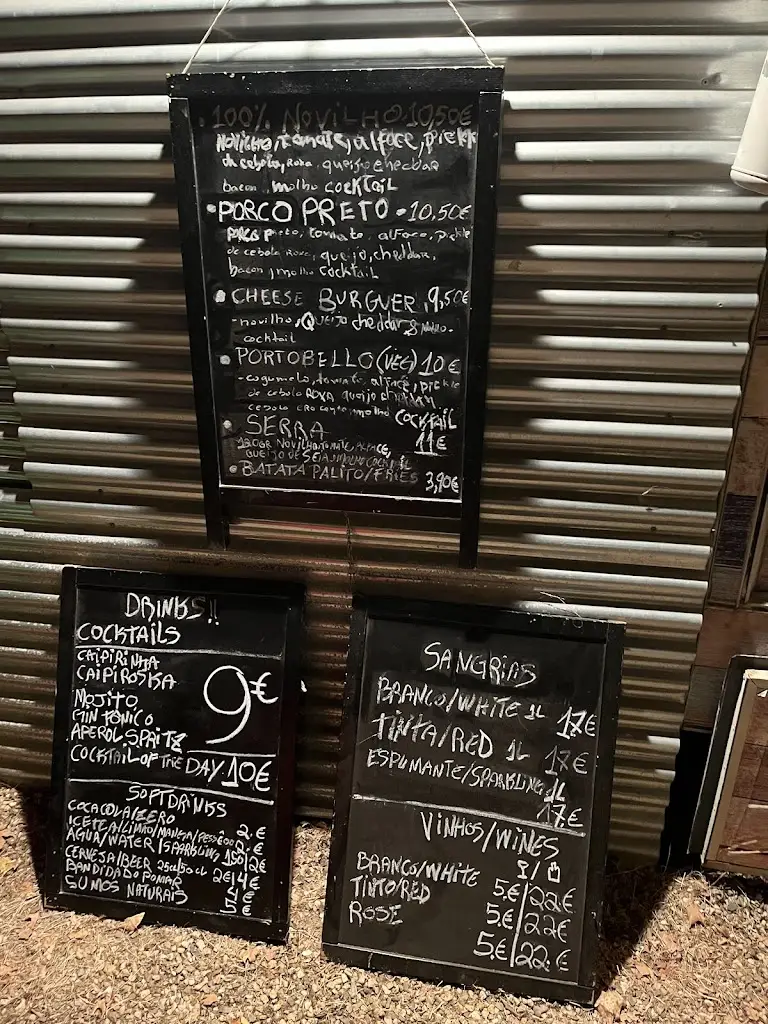 100% NOVILHO 10,50€
NOVILHO, tomate, alface, pickle
de cebola, Roxa, queijo checbar
bacon, molho COCKTAIL
• PORCO PRETO • 10,50€
PORCO Preto, tomate, alface, pickle
de cebola Roxa, queijo, cheddar,
bacon, molho COCKTAIL
• CHEESE BURGUER, 9,50€
- novilho, Queijo cheddar & molho -
cocktail
• PORTOBELLO (VEG) 10€
- cogumelo, tomate, alface, pickle
de cebola ROXA queijo
cebola molho COCKTAIL
• SERRA 11€
180GR NOVILHO, TOMATE, ALFACE,
QUEIJO DE SEIA, MOLHO COCKTAIL
• BATATA PALITO/FRIES 3,90€
DRINKS!!
COCKTAILS
CAIPIRINHA
CAIPIROSKA
MOJITO
9€
GIN TÓNICO
APEROL SPRITZ
COCKTAIL OF THE DAY 10€
SOFTDRINKS
COCACOLA/ZERO 2.€
ICETEA/LIMÃO/MANGA/PESSEGO 2.€
AGUA/WATER/SPARKLING 1,50|2€
CERVEJA/BEER 25cl/50cl 2€|4€
BANDIDA DO POMAR
SUMOS NATURAIS 5€
SANGRIAS
BRANCO/WHITE 1L 17€
TINTA/RED 1L 17€
ESPUMANTE/SPARKLING 1L
17€
VINHOS/WINES
BRANCO/WHITE 5€|22€
TINTO/RED 5€|22€
ROSE 5€|22€